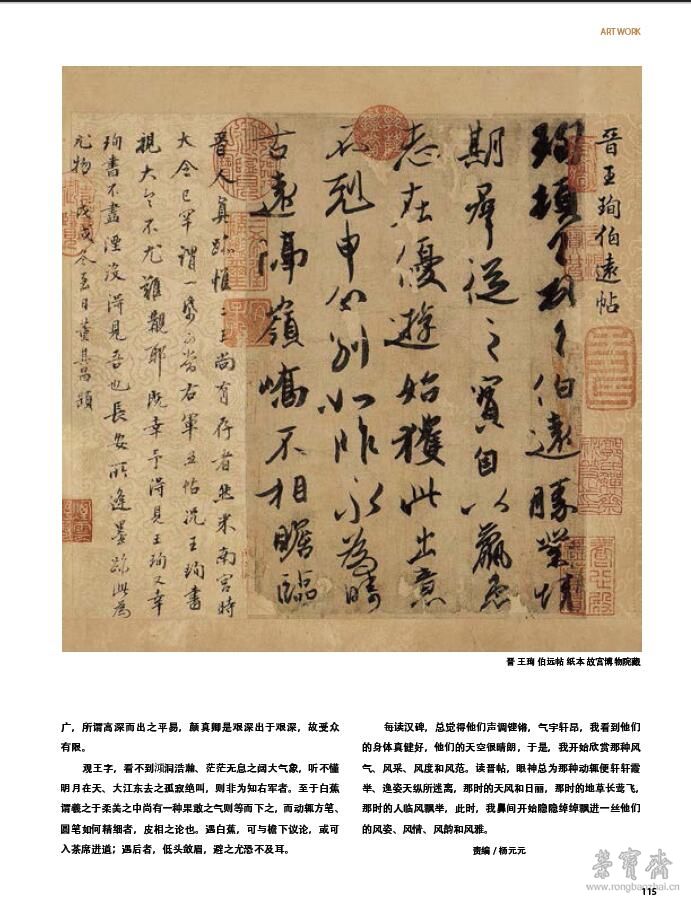 ART WORK
晉王珣伯遠帖
珣頓首頓首伯遠勝業情
期羣從之寶自以羸患
志在優遊始獲此出意
不剋申分別如昨永為疇
古遠隔嶺嶠不相瞻臨
晉人真跡惟二王尚有存者然米南宮時
大令已罕謂一紙可當右軍五帖況王珣書
視大令不尤難覯耶既幸予得見王珣又幸
珣書不盡湮沒得見吾也長安所逢墨跡此為
尤物戊戌冬至日董其昌題
晋 王珣 伯远帖 纸本 故宫博物院藏
广，所谓高深而出之平易，颜真卿是艰深出于艰深，故受众
有限。
观王字，看不到澒洞浩瀚、茫茫无息之阔大气象，听不懂
明月在天、大江东去之孤寂绝叫，则非为知右军者。至于白蕉
谓羲之于柔美之中尚有一种果敢之气则等而下之，而动辄方笔、
圆笔如何精细者，皮相之论也。遇白蕉，可与檐下议论，或可
入茶席进道；遇后者，低头敛眉，避之尤恐不及耳。
每读汉碑，总觉得他们声调铿锵，气宇轩昂，我看到他们
的身体真健好，他们的天空很晴朗，于是，我开始欣赏那种风
气、风采、风度和风范。读晋帖，眼神总为那种动辄便轩轩霞
举、逸姿天纵所迷离，那时的天风和日丽，那时的地草长莺飞，
那时的人临风飘举，此时，我鼻间开始隐隐绰绰飘进一丝他们
的风姿、风情、风韵和风雅。
责编 / 杨元元
荣宝斋
www.rongbaozhai.cn
115